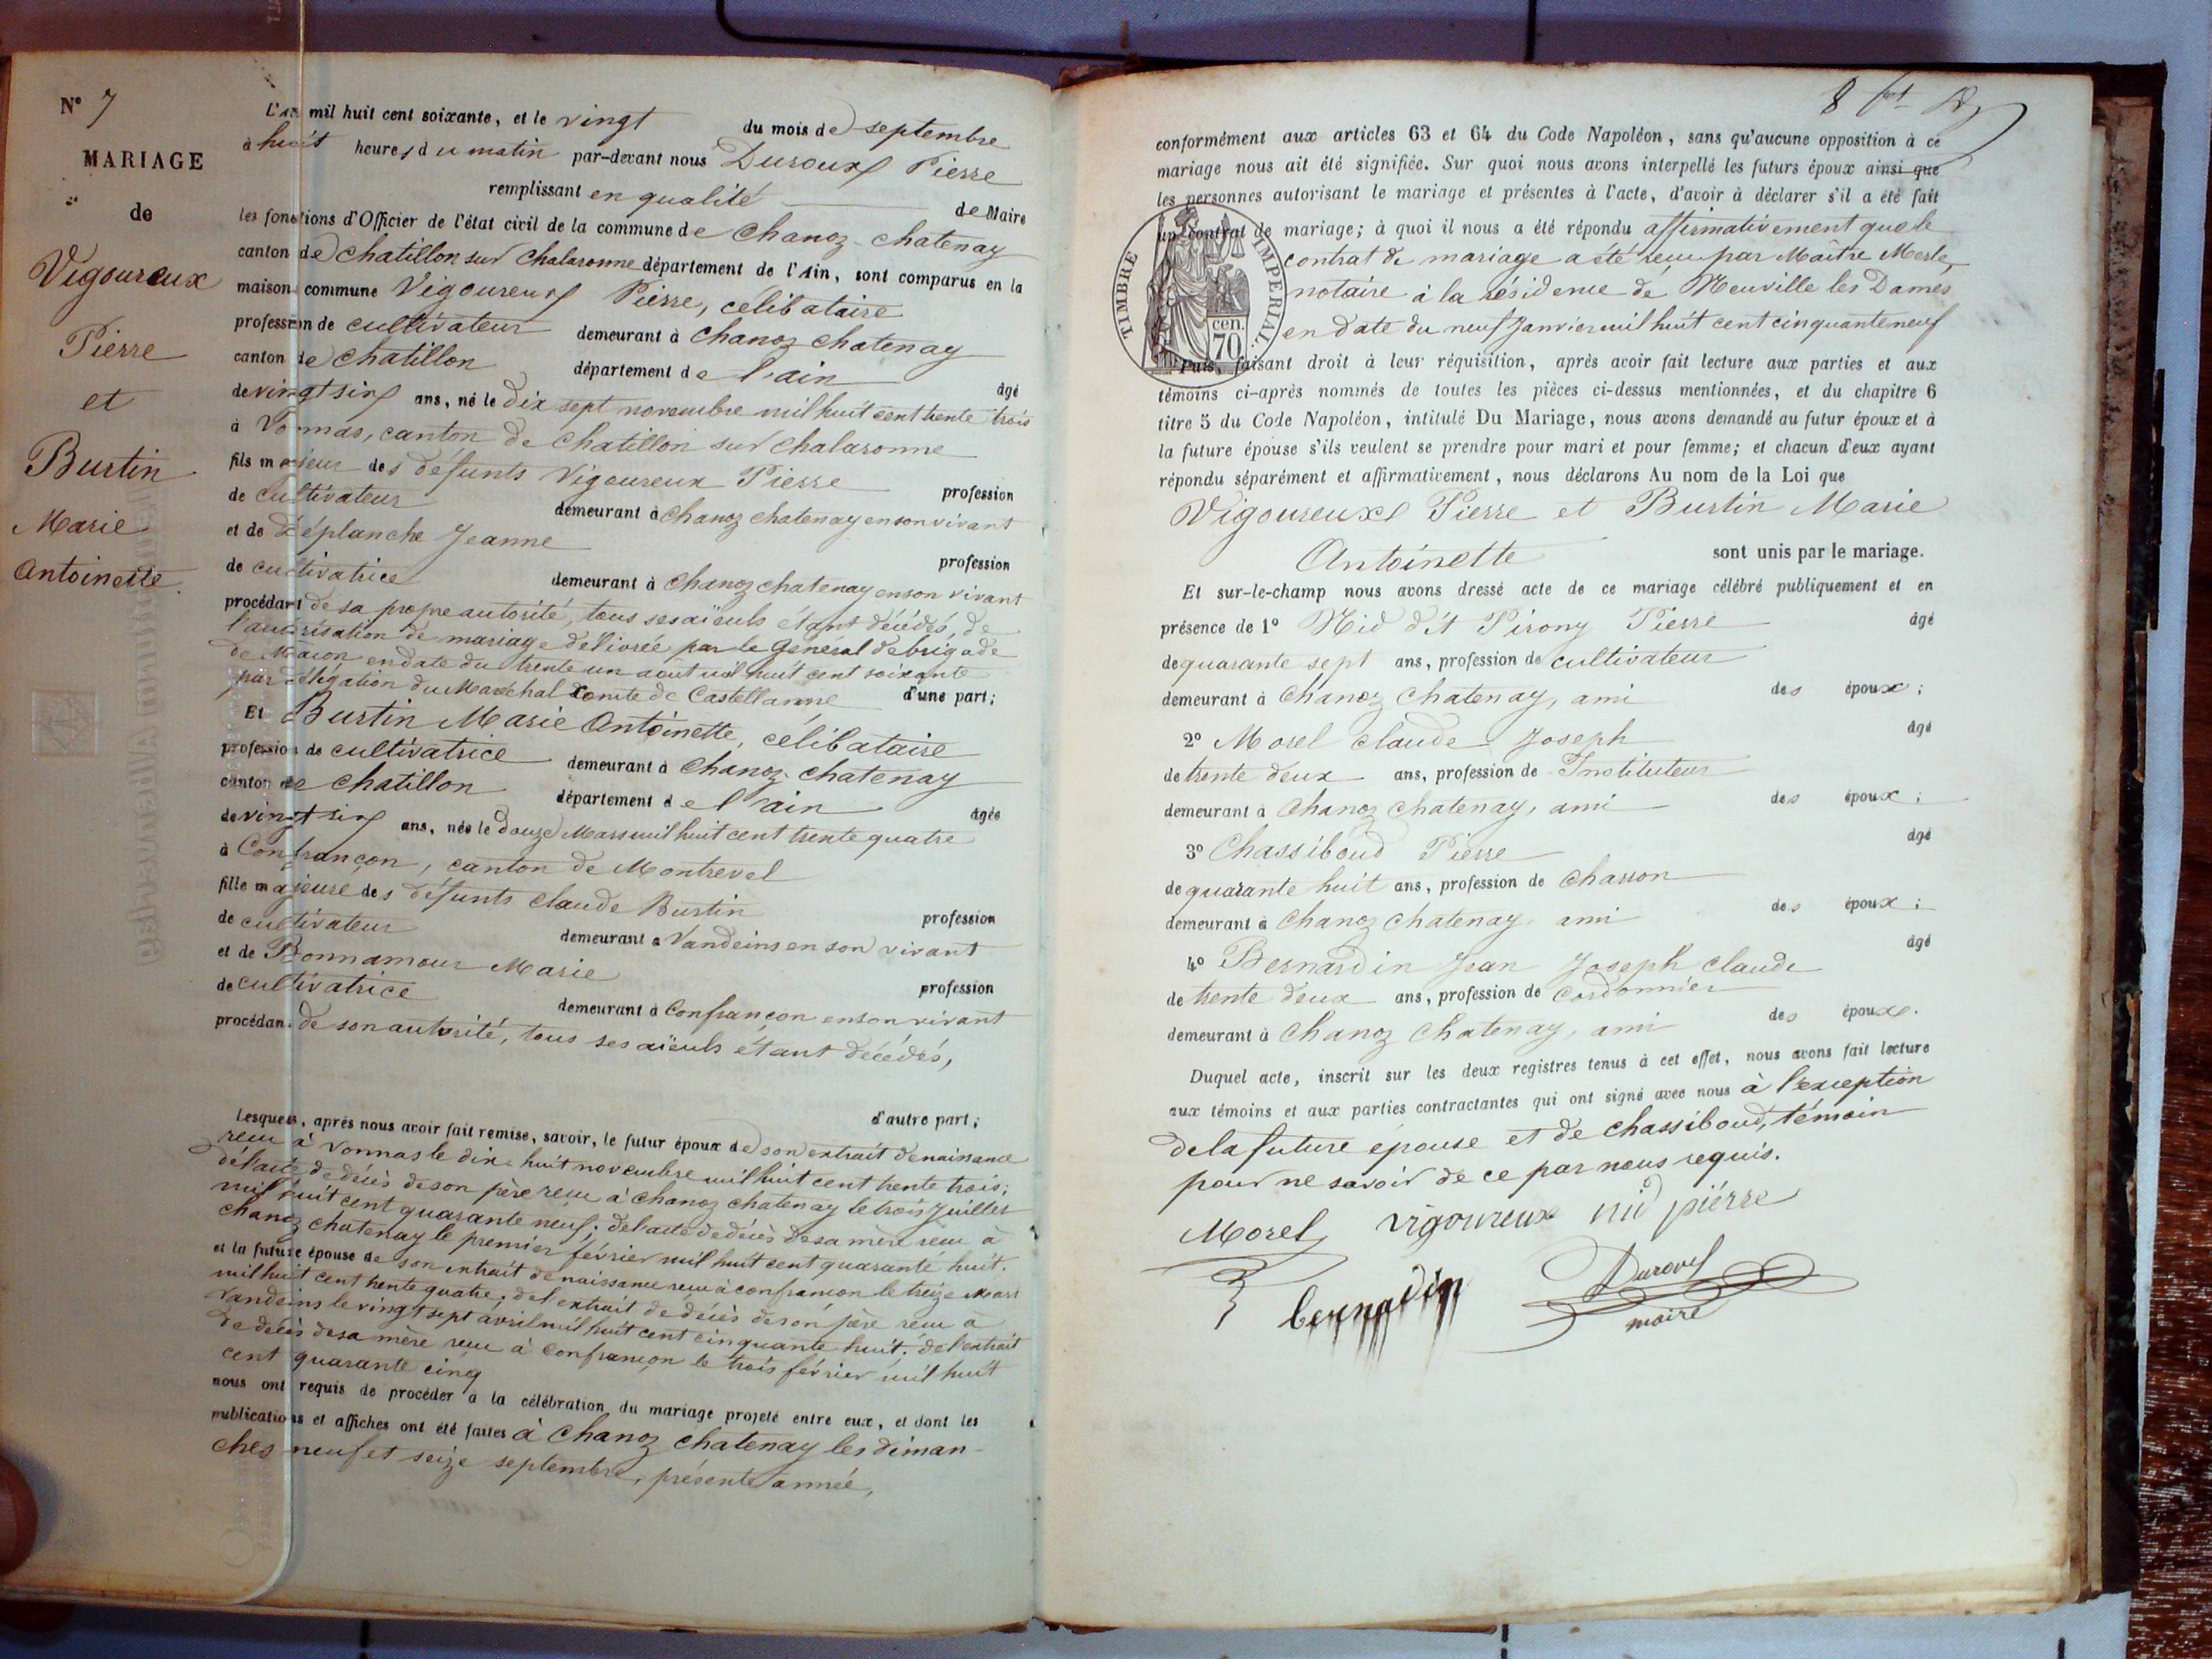 N° 7
MARIAGE
de
Vigoureux
Pierre
et
Burtin
Marie
Antoinette.
L'an mil huit cent soixante, et le vingt du mois de septembre
à huit heures du matin par-devant nous Duroux Pierre
remplissant en qualité de Maire
les fonctions d'Officier de l'état civil de la commune de Chanoz-Chatenay
canton de Chatillon sur Chalaronne département de l'Ain, sont comparus en la
maison commune Vigoureux Pierre, célibataire
profession de cultivateur demeurant à Chanoz Chatenay
canton de Chatillon département de l'ain âgé
de vingt six ans, né le dix sept novembre mil huit cent trente trois
à Vonnas, canton de Chatillon sur Chalaronne
fils majeur des défunts Vigoureux Pierre profession
de cultivateur demeurant à Chanoz Chatenay en son vivant
et de Déplanche Jeanne profession
de cultivatrice demeurant à Chanoz Chatenay en son vivant
procédant de sa propre autorité, tous ses aïeuls étant décédés, de
l'autorisation de mariage délivrée par le Général de brigade
de Macon en date du trente un août mil huit cent soixante
par délégation du Maréchal Comte de Castellanne d'une part;
Et Burtin Marie Antoinette, célibataire
profession de cultivatrice demeurant à Chanoz-Chatenay
canton de Chatillon département de l'ain âgée
de vingt six ans, née le douze Mars mil huit cent trente quatre
à Confrançon, canton de Montrevel
fille majeure des défunts Claude Burtin profession
de cultivateur demeurant à Vandeins en son vivant
et de Bonnamour Marie profession
de cultivatrice demeurant à Confrançon en son vivant
procédant de son autorité, tous ses aïeuls étant décédés,
d'autre part;
Lesquels, après nous avoir fait remise, savoir, le futur époux de son extrait de naissance
reçu à Vonnas le dix-huit novembre mil huit cent trente trois;
de l'acte de décès de son père reçu à Chanoz Chatenay le trois Juillet
mil huit cent quarante neuf; de l'acte de décès de sa mère reçu à
Chanoz Chatenay le premier février mil huit cent quarante huit.
et la future épouse de son extrait de naissance reçu à Confrançon le treize Mars
mil huit cent trente quatre; de l'extrait de décès de son père reçu à
Vandeins le vingt sept avril mil huit cent cinquante huit; de l'extrait
de décès de sa mère reçu à Confrançon le trois février mil huit
cent quarante cinq
nous ont requis de procéder à la célébration du mariage projeté entre eux, et dont les
publications et affiches ont été faites à Chanoz Chatenay les diman-
ches neuf et seize septembre, présente année,
8
conformément aux articles 63 et 64 du Code Napoléon, sans qu'aucune opposition à ce
mariage nous ait été signifiée. Sur quoi nous avons interpellé les futurs époux ainsi que
les personnes autorisant le mariage et présentes à l'acte, d'avoir à déclarer s'il a été fait
un contrat de mariage; à quoi il nous a été répondu affirmativement que le
contrat de mariage a été reçu par Maître Merle,
notaire à la résidence de Neuville les Dames
en date du neuf Janvier mil huit cent cinquante neuf
TIMBRE IMPERIAL
70 cen.
Puis, faisant droit à leur réquisition, après avoir fait lecture aux parties et aux
témoins ci-après nommés de toutes les pièces ci-dessus mentionnées, et du chapitre 6
titre 5 du Code Napoléon, intitulé Du Mariage, nous avons demandé au futur époux et à
la future épouse s'ils veulent se prendre pour mari et pour femme; et chacun d'eux ayant
répondu séparément et affirmativement, nous déclarons Au nom de la Loi que
Vigoureux Pierre et Burtin Marie
Antoinette sont unis par le mariage.
Et sur-le-champ nous avons dressé acte de ce mariage célébré publiquement et en
présence de 1° Nid dit Pirony Pierre âgé
de quarante sept ans, profession de cultivateur
demeurant à Chanoz Chatenay, ami des époux;
2° Morel Claude Joseph âgé
de trente deux ans, profession de Instituteur
demeurant à Chanoz Chatenay, ami des époux;
3° Chassiboud Pierre âgé
de quarante huit ans, profession de charron
demeurant à Chanoz Chatenay, ami des époux;
4° Bernardin Jean Joseph Claude âgé
de trente deux ans, profession de Cordonnier
demeurant à Chanoz Chatenay, ami des époux.
Duquel acte, inscrit sur les deux registres tenus à cet effet, nous avons fait lecture
aux témoins et aux parties contractantes qui ont signé avec nous à l'exception
de la future épouse et de Chassiboud, témoin
pour ne savoir de ce par nous requis.
Morel vigoureux nid piérre
bernadin Duroux
maire